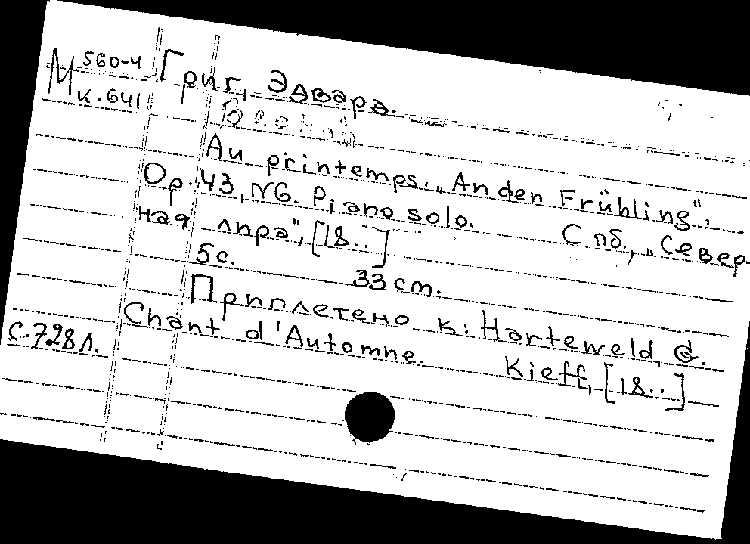 М 560-4
к.641
Григ, Эдвард.
Au printemps. „An den Frühling".
Op. 43, N6. Piano solo. Спб., „Север
ная лира", [18..]
5с. 33 cm.
Приплетено к: Harteweld, G.
Chant d'Automne. Kieff, [18..]
С.728л.